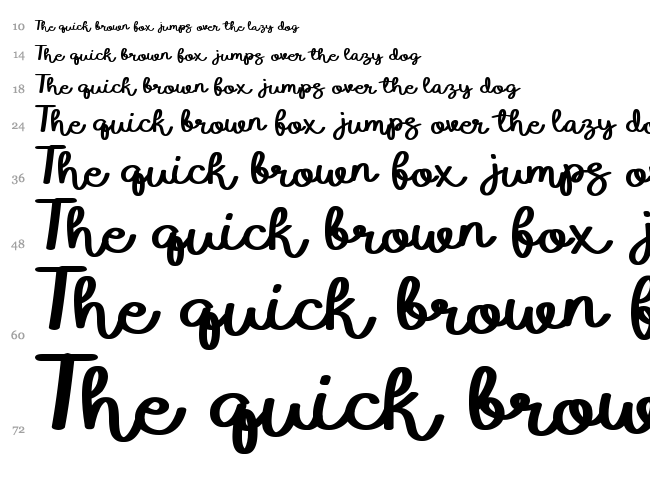 10 The quick brown fox jumps over the lazy dog
14 The quick brown fox jumps over the lazy dog
18 The quick brown fox jumps over the lazy dog
24 The quick brown fox jumps over the lazy do
36 The quick brown fox jumps o
48 The quick brown fox j
60 The quick brown f
72 The quick brow